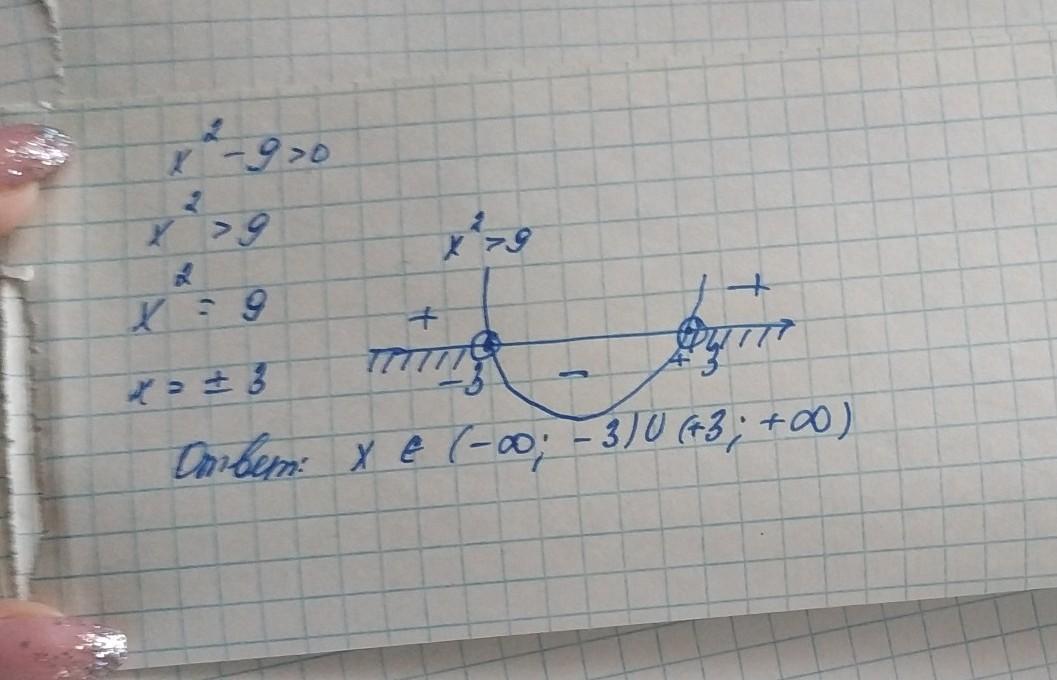 x² - 9 > 0
x² > 9
x² = 9
x = ± 3
x² > 9
+ - +
-3 +3
Ответ: x ∈ (-∞; -3) ∪ (+3; +∞)